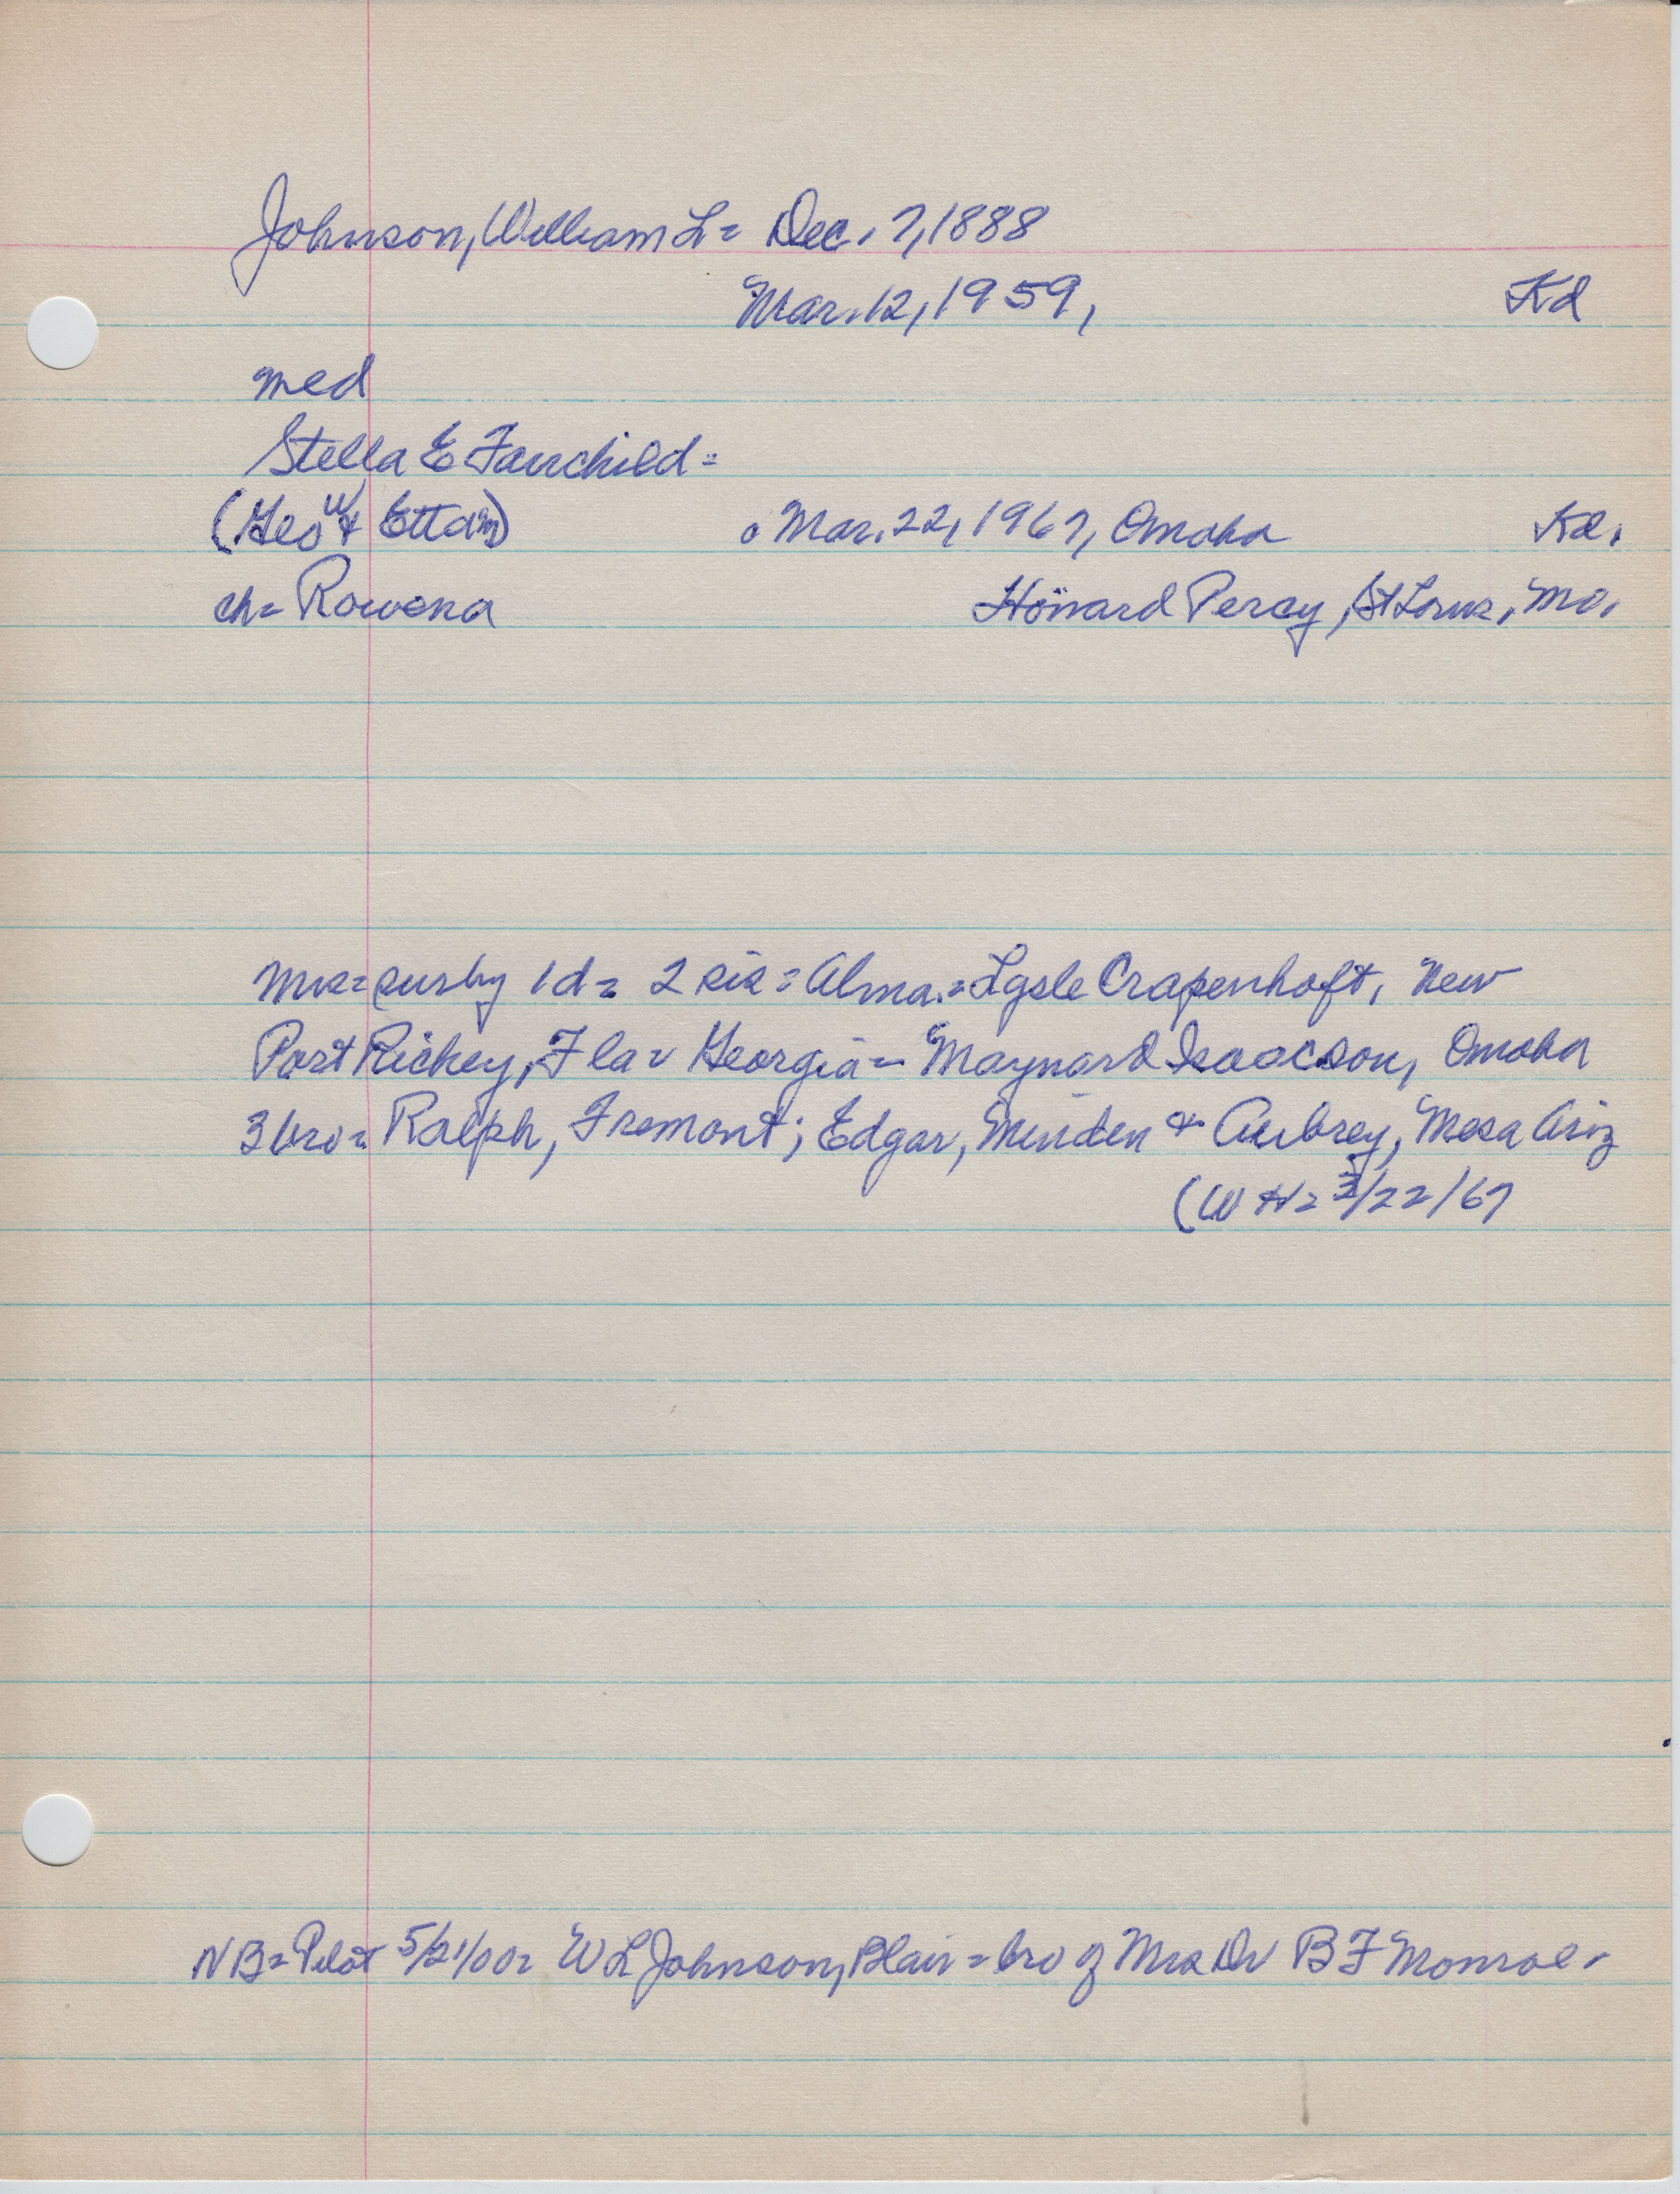 Johnson, William L = Dec. 7, 1888
Mar. 12, 1959, Kd
med
Stella E Fairchild =
(Geo W & Etta m) o Mar. 22, 1967, Omaha Kd.
ch = Rowena Howard Percy, St Louis, Mo.
Mrs = sur by 1 d = 2 sis = Alma = Lysle Crapenhoft, New
Port Richey, Fla = Georgia = Maynard Isaacson, Omaha
3 bro = Ralph, Fremont; Edgar, Minden & Aubrey, Mesa Ariz
(WH = 3/22/67
NB = Pilot 5/21/00 = W L Johnson, Blair = bro of Mrs Dr B F Monroe.